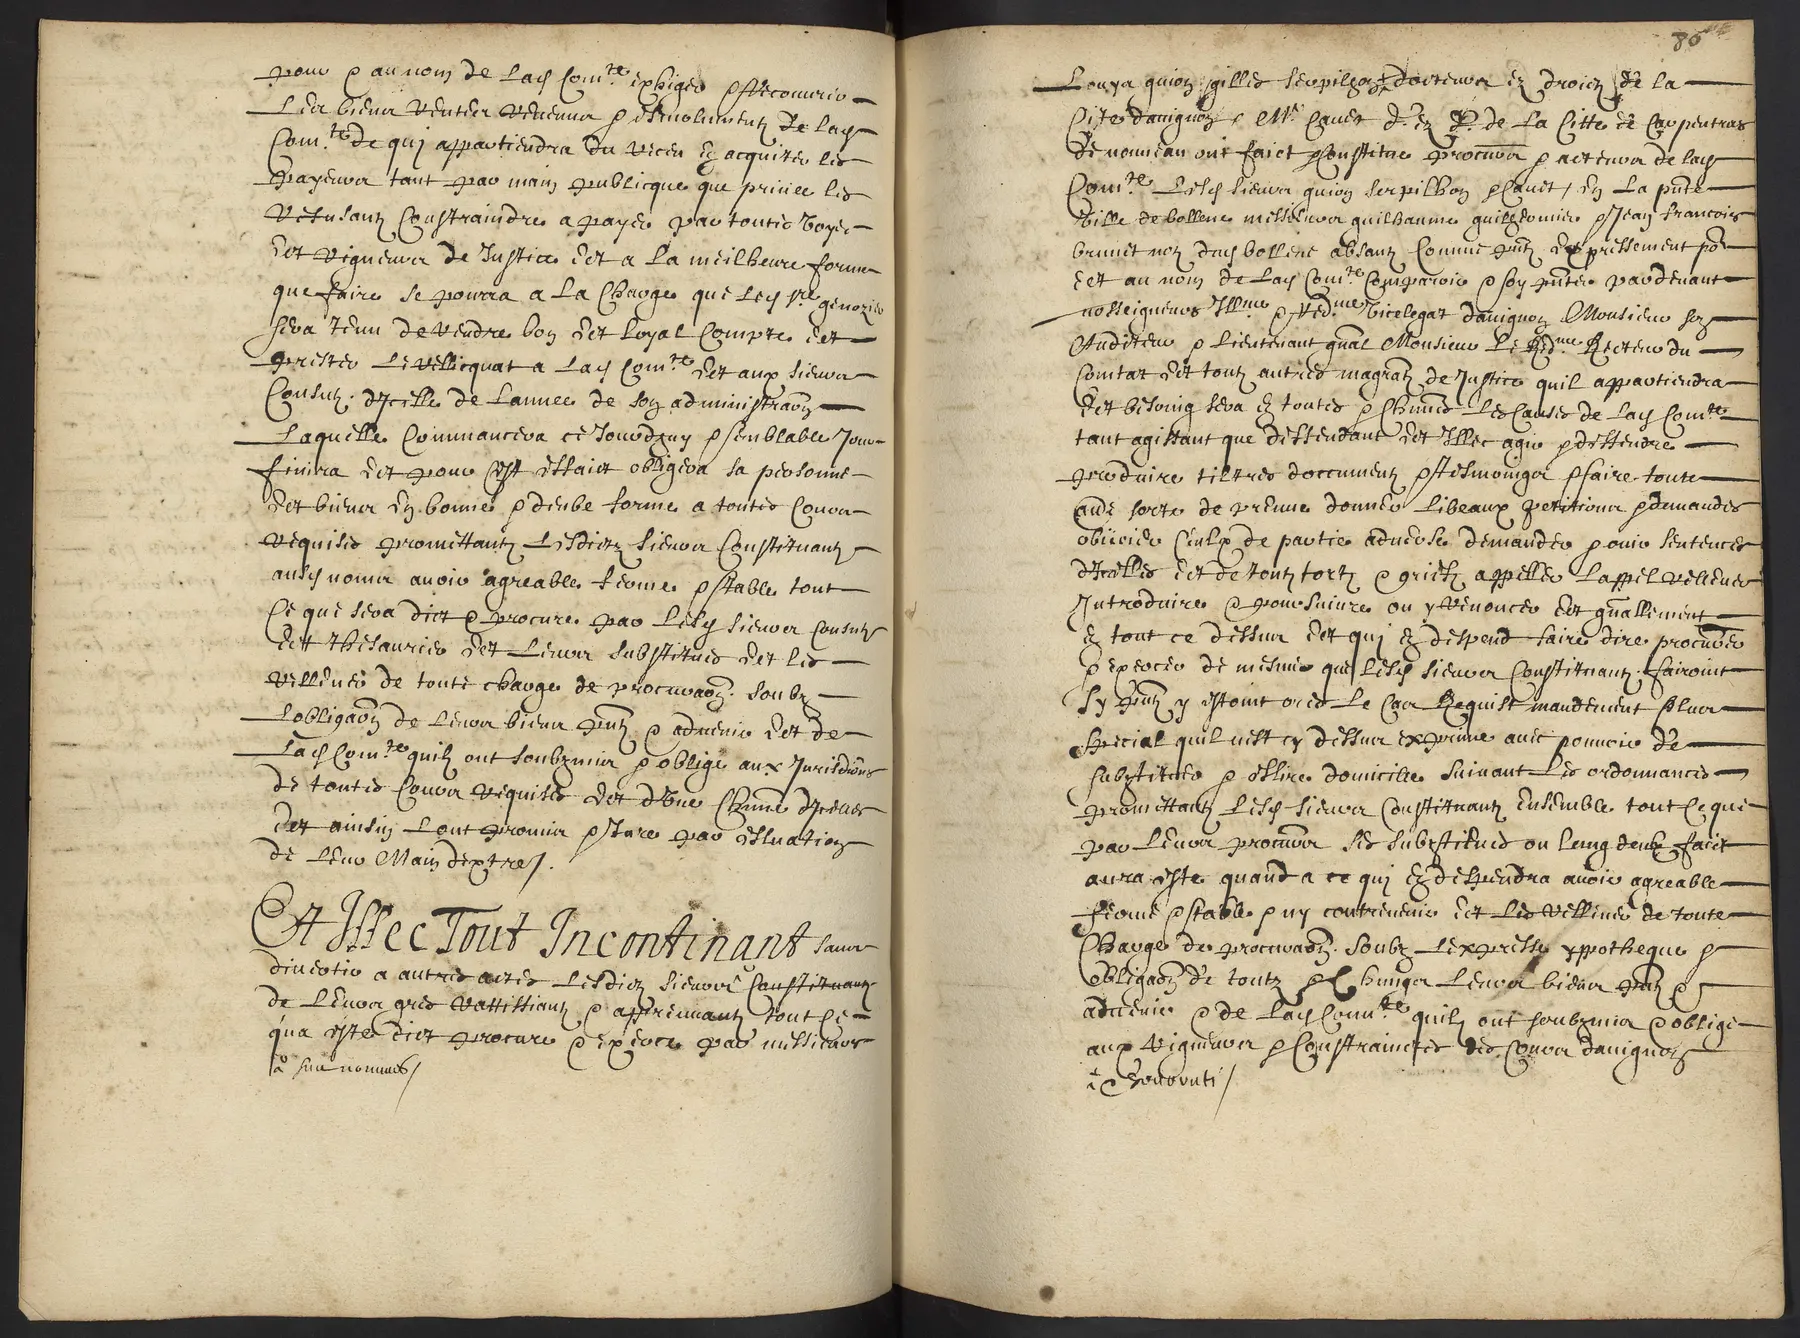 pour et au nom de lad Com.te exhiger et recouvrir
les biens rentes revenus et esmolumentz de lad
Com.te de qui appartiendra du receu en acquiter les
payeurs tant par main publicque que privee les
refusantz constraindre a payer par toutes voyes
et vigueurs de Justice et a la meilheure forme
que faire se pourra a la charge que led sr
sera tenu de rendre bon et loyal compte et
prester le relliquat a lad Com.te et aux sieurs
Consulz d'icelle de lannee de son administraon
Laquelle commancera ce Jourdhuy et semblable Jour
finira et pour cest effaict obligera sa personne
et biens en bonne et deube forme a toutes cours
requises promettantz lesdictz sieurs constituantz
ausd noms avoir agreable ferme et stable tout
ce que sera dict et procure par lesd sieurs consulz
et thesaurier et leurs substitues et les
rellever de toute charge de procuraon soubz
lobligaon de leurs biens pntz et advenir et de
lad Com.te quilz ont soubzmis et oblige aux Jurisdions
de toutes cours requises et d'une chune d'icelles
et ainsin lont promis et Jure par
de leur Main dextre /.
Et Illec Tout Incontinant sans
divertir a autres actes lesdictz sieurs Constituantz
de leurs gres rattiffiantz et appreuvantz tout ce
qua este dict procure et exerce par messieurs
nommes /
80
Louys quion gilles serpilhon docteurs en droictz de la
Cite davignon et Mr. Cavet d.r en d. de la Citte de Carpentras
de nouveau ont faict et constitue procurs et acteurs de lad
Com.te lesd sieurs quion serpilhon et Cavet / en la pnte
ville de bollene messieurs guilhaume et Jean francois
brunet nor dud bollene absantz comme pntz expressement por
et au nom de lad Com.te comparoir et soy pnter pardevant
nosseigneurs Ill.me et R.ed.me vicelegat davignon Monsieur son
Auditeur et lieutenant gnal Monsieur le R.ed.me Recteur du
Comtat et toutz autres magratz de Justice quil appartiendra
et besoing sera en toutes et chunes les causes de lad Com.te
tant agissant que deffendant et Illec agir et deffendre
produire tiltres documentz et tesmoings et faire toute
aue sorte de preuve donner libeaux petitions et demandes
obijcier ceulx de partie adverse demander et ouir sentences
dicelles et de toutz tortz et griefz appeller lappel rellever
Introduire et poursuivre ou y renoncer et gnallement
en tout ce dessus et qui en despend faire dire procurer
et exercer de mesme que lesd sieurs constituantz fairoint
sy pntz y estoint ores le cas Requist mandement plus
special quil nest cy dessus exprime avec pouvoir de
substituer et eslire domicille suivant les ordonnances
promettantz lesd sieurs constituantz ensemble tout ce que
par leurs procurs ses substitues ou lung deulx faict
aura este quand a ce qui en despendra avoir agreable
ferme et stable et ny contrevenir et les rellever de toute
charge de procuraon soubz lexpresse ypotheque et
obligaon de toutz et chungs leurs biens pntz et
advenir et de lad Com.te quilz ont soubzmis et oblige
aux vigueurs et constrainctes des cours davignon